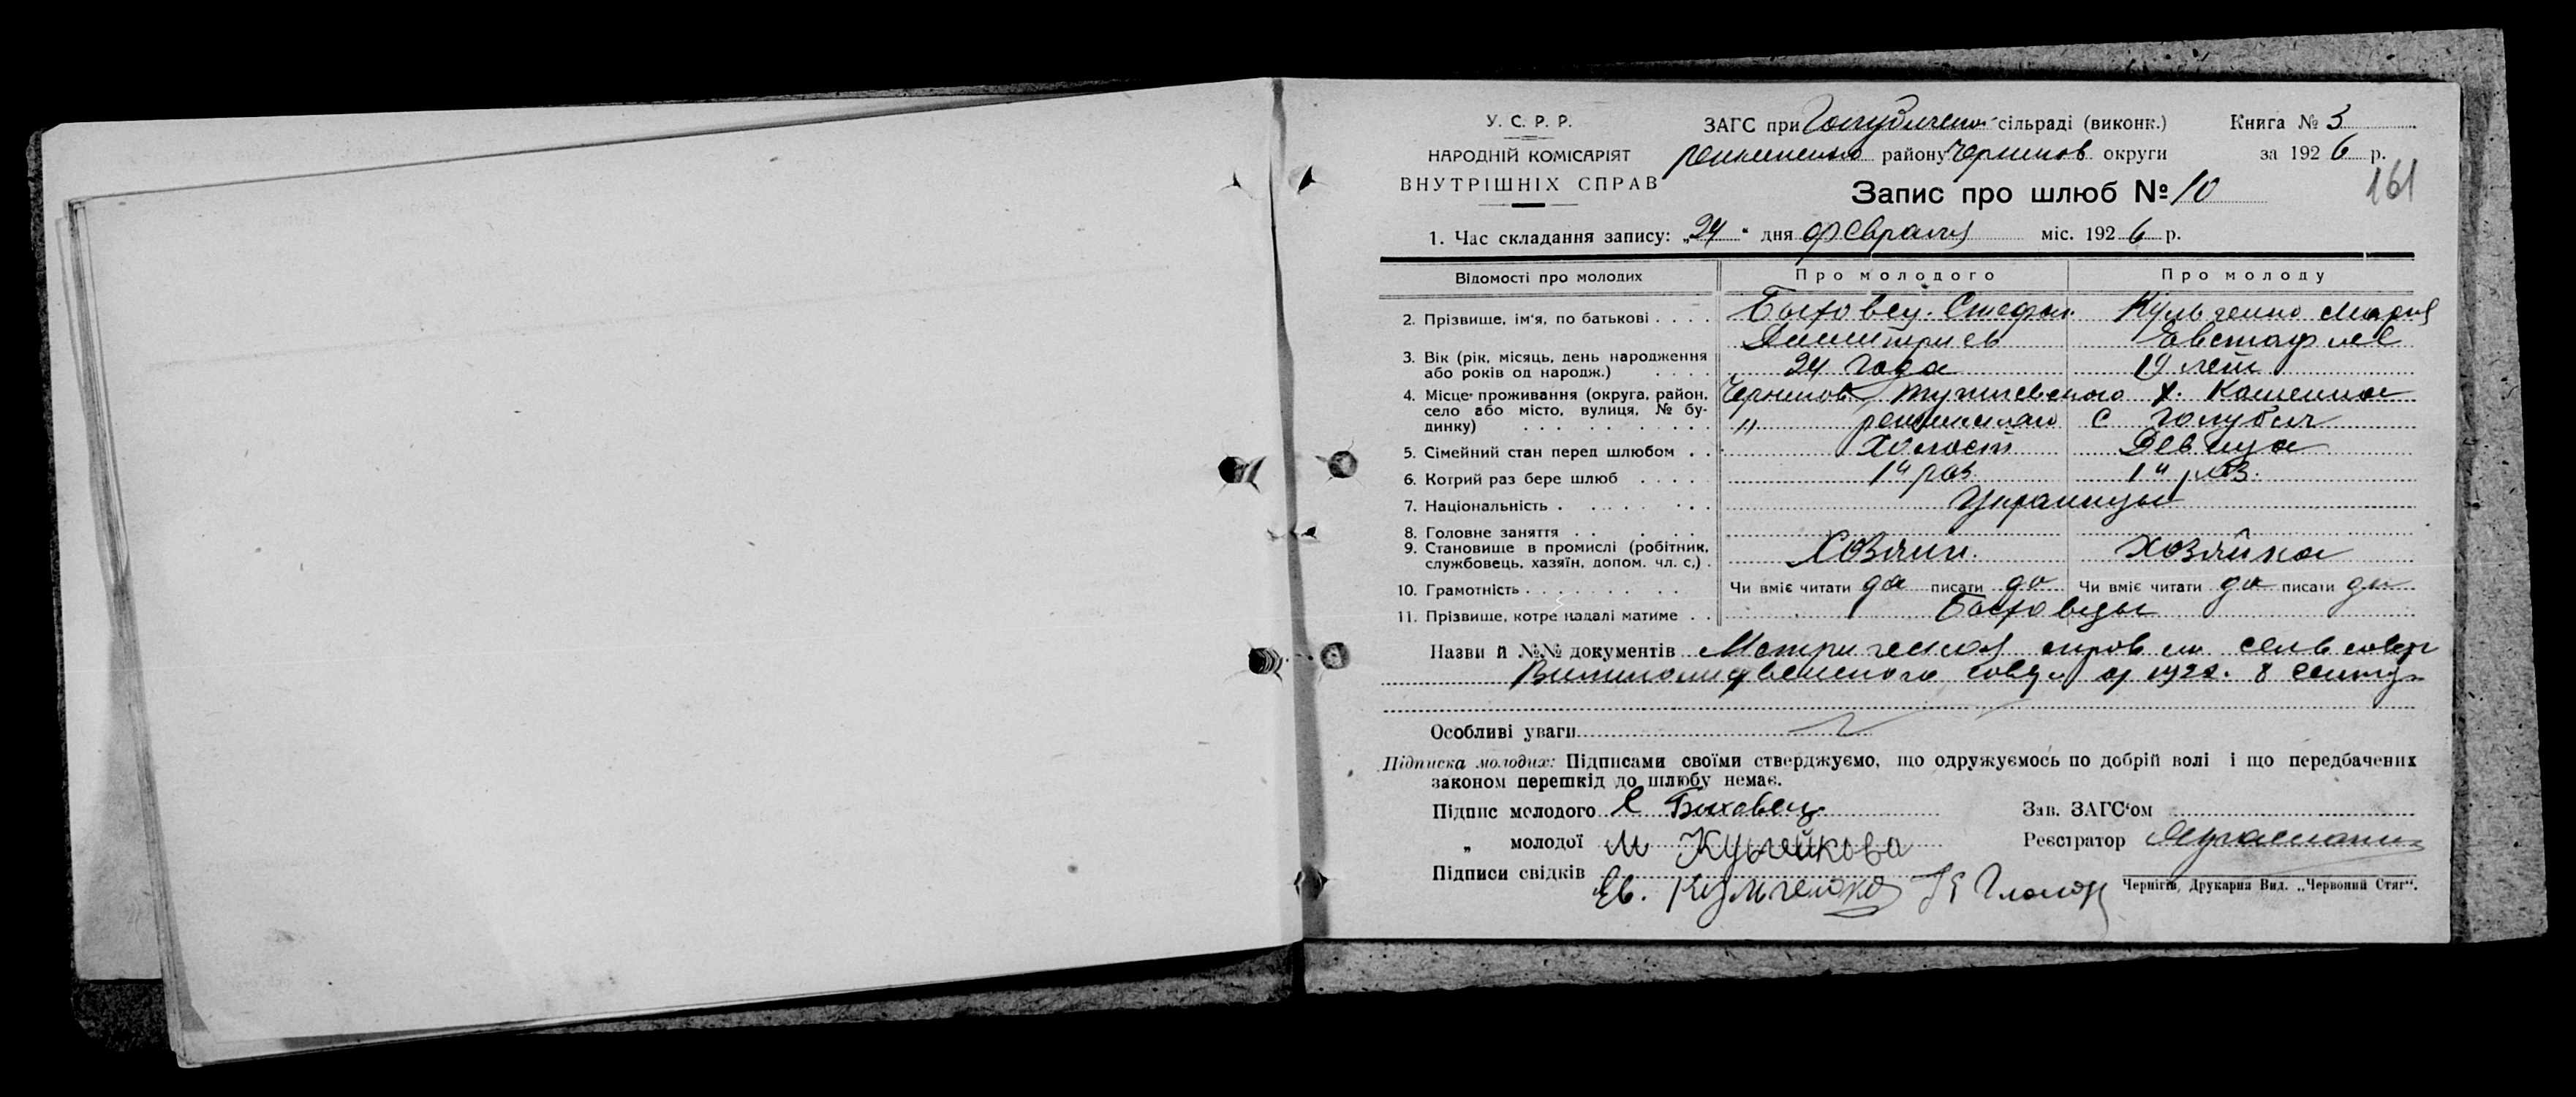 У. С. Р. Р.
НАРОДНІЙ КОМІСАРІЯТ
ВНУТРІШНІХ СПРАВ
ЗАГС при сільраді (виконк.) Книга № 3
району Чернигов округи за 1926 р.
161
Запис про шлюб № 10
1. Час складання запису: „24“ дня февраля міс. 1926 р.
Відомості про молодих Про молодого Про молоду
2. Прізвище, ім'я, по батькові . . . . Быховец Стефан Кульченко Мария
Дмитриев Евстафиев
3. Вік (рік, місяць, день народження
або років од народж.) . . . . 24 года 19 лет
4. Місце проживання (округа, район,
село або місто, вулиця, № бу-
динку) . . . Чернигов х.
" с Голубич
5. Сімейний стан перед шлюбом . . Холост Девица
6. Котрий раз бере шлюб . . . . . 1й раз 1й раз.
7. Національність . . . . . . . . Украинцы
8. Головне заняття . . . . . .
9. Становище в промислі (робітник,
службовець, хазяїн, допом. чл. с,) . Хозяин. Хозяйка
10. Грамотність . . . . . . . . . Чи вміє читати да писати да Чи вміє читати да писати да
11. Прізвище, котре надалі матиме . . Быховцы
Назви й №№ документів Метрическая
8
Особливі уваги
Підписка молодих: Підписами своїми стверджуємо, що одружуємось по добрій волі і що передбачених
законом перешкід до шлюбу немає.
Підпис молодого С Быховец Зав. ЗАГС'ом
„ молодої М Реєстратор
Підписи свідків
Ев. Кульченко
Чернігів, Друкарня Вид. „Червоний Стяг“.